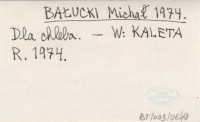 BAŁUCKI Michał 1974.
Dla chleba. – W: KALETA
R. 1974.
BT/003/0649